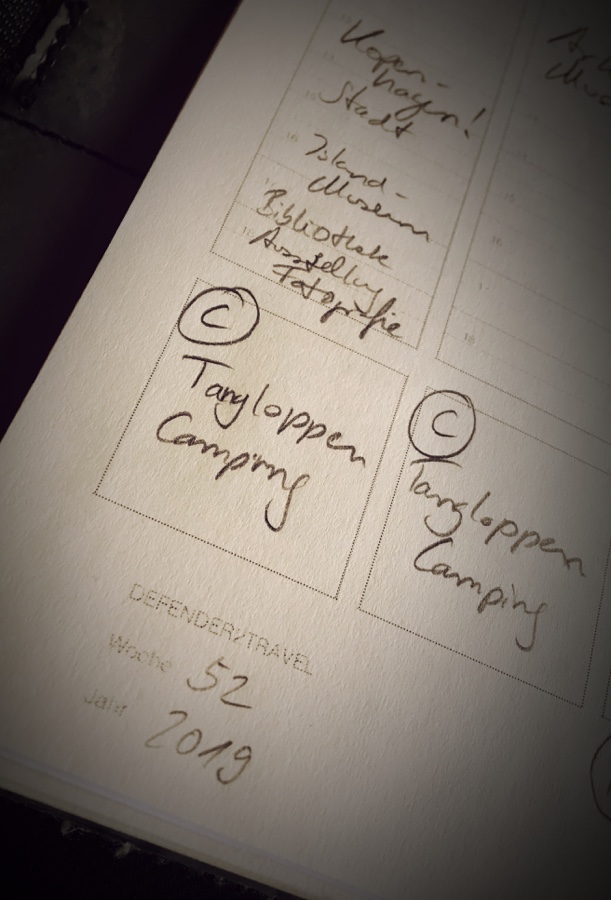 Kopen-
hagen!
Stadt
Island-
Museum
Bibliothek
Ausstellung
Fotografie
C
Tangloppen
Camping
C
Tangloppen
Camping
DEFENDER2TRAVEL
Woche 52
Jahr 2019